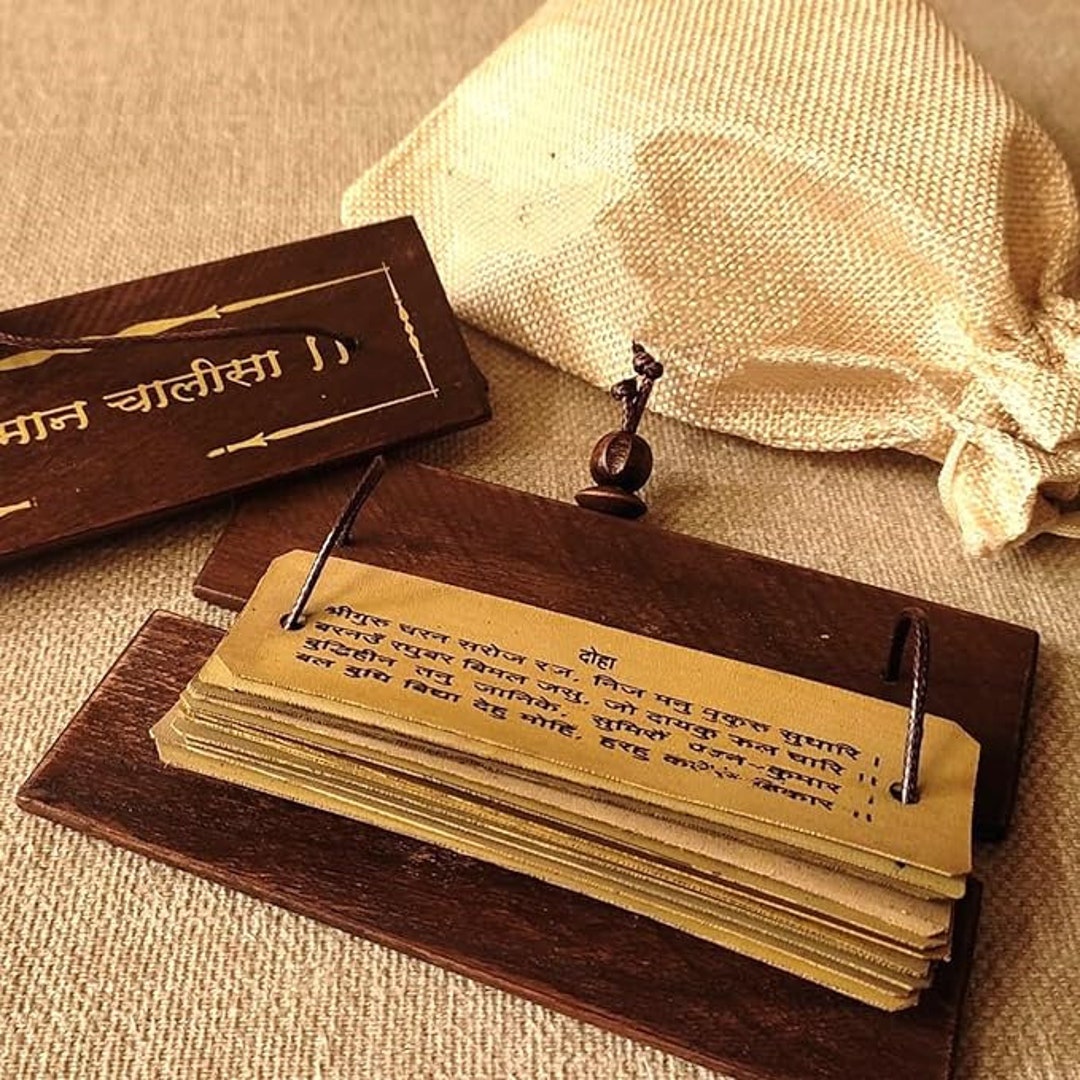 मान चालीसा ।।
दोहा
श्रीगुरु चरन सरोज रज, निज मनु मुकुरु सुधारि ।
बरनउँ रघुबर बिमल जसु, जो दायकु फल चारि ।।
बुद्धिहीन तनु जानिके, सुमिरौं पवन-कुमार ।
बल बुधि बिद्या देहु मोहिं, हरहु ।।